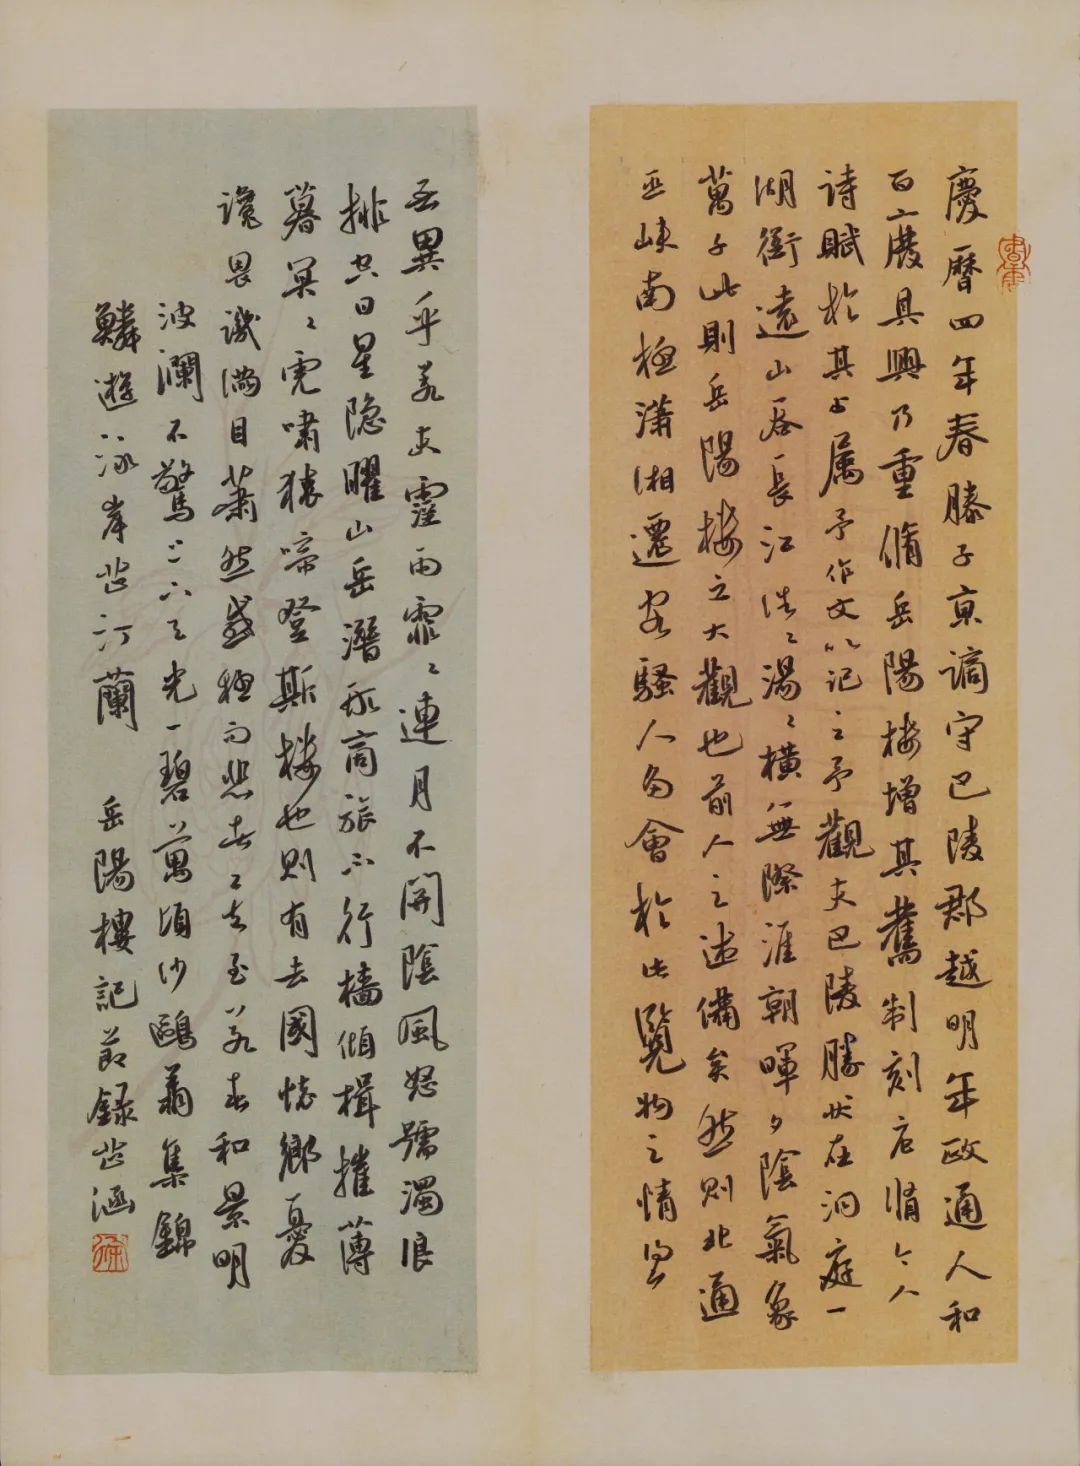 慶曆四年春滕子京謫守巴陵郡越明年政通人和
百廢具興乃重脩岳陽樓增其舊制刻唐賢今人
詩賦於其上属予作文以記之予觀夫巴陵勝狀在洞庭一
湖銜遠山吞長江浩〻湯〻橫無際涯朝暉夕陰氣象
萬千此則岳陽樓之大觀也前人之述備矣然則北通
巫峽南極瀟湘遷客騷人多會於此覽物之情得
無異乎若夫霪雨霏〻連月不開陰風怒號濁浪
排空日星隐曜山岳潛形商旅不行檣傾楫摧薄
暮冥〻虎嘯猿啼登斯樓也則有去國懷鄉憂
讒畏譏滿目蕭然感極而悲者〻矣至若春和景明
波瀾不驚上下天光一碧萬頃沙鷗翔集錦
鱗游泳岸芷汀蘭 岳陽樓記節録芷涵